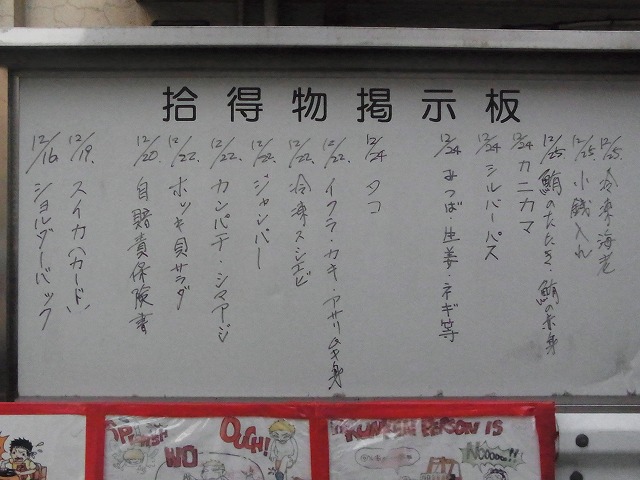 拾得物掲示板
12/25. 冷凍・海老
12/25. 小銭入れ
12/25 鮪のたたき・鮪の赤身
12/24 カニカマ
12/24 シルバーパス
12/24 みつば・生姜・ネギ等
12/24 タコ
12/22. イクラ・カキ・アサリムキ身
12/22. 冷凍スシエビ
12/22. ジャンパー
12/22. カンパチ・シマアジ
12/22. ホッキ貝サラダ
12/20. 自賠責保険書
12/19. スイカ(カード)
12/16 ショルダーバック
OUCH!
NO
PERSON IS
NOOOOO!!